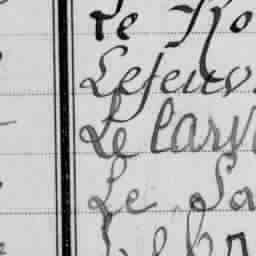 Le Ro
Lefeuv
Le Carv
Le Sa
Lebr